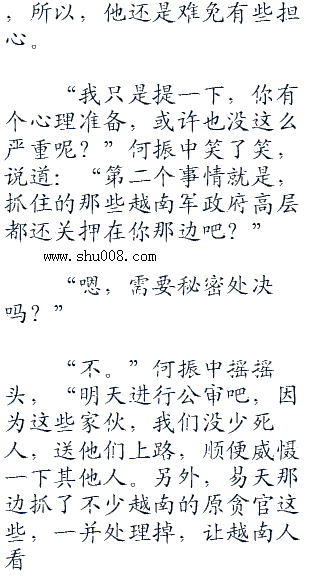 ，所以，他还是难免有些担
心。
“我只是提一下，你有
个心理准备，或许也没这么
严重呢？”何振中笑了笑，
说道：“第二个事情就是，
抓住的那些越南军政府高层
都还关押在你那边吧？”
www.shu008.com
“嗯，需要秘密处决
吗？”
“不。”何振中摇摇
头，“明天进行公审吧，因
为这些家伙，我们没少死
人，送他们上路，顺便威慑
一下其他人。另外，易天那
边抓了不少越南的原贪官这
些，一并处理掉，让越南人
看